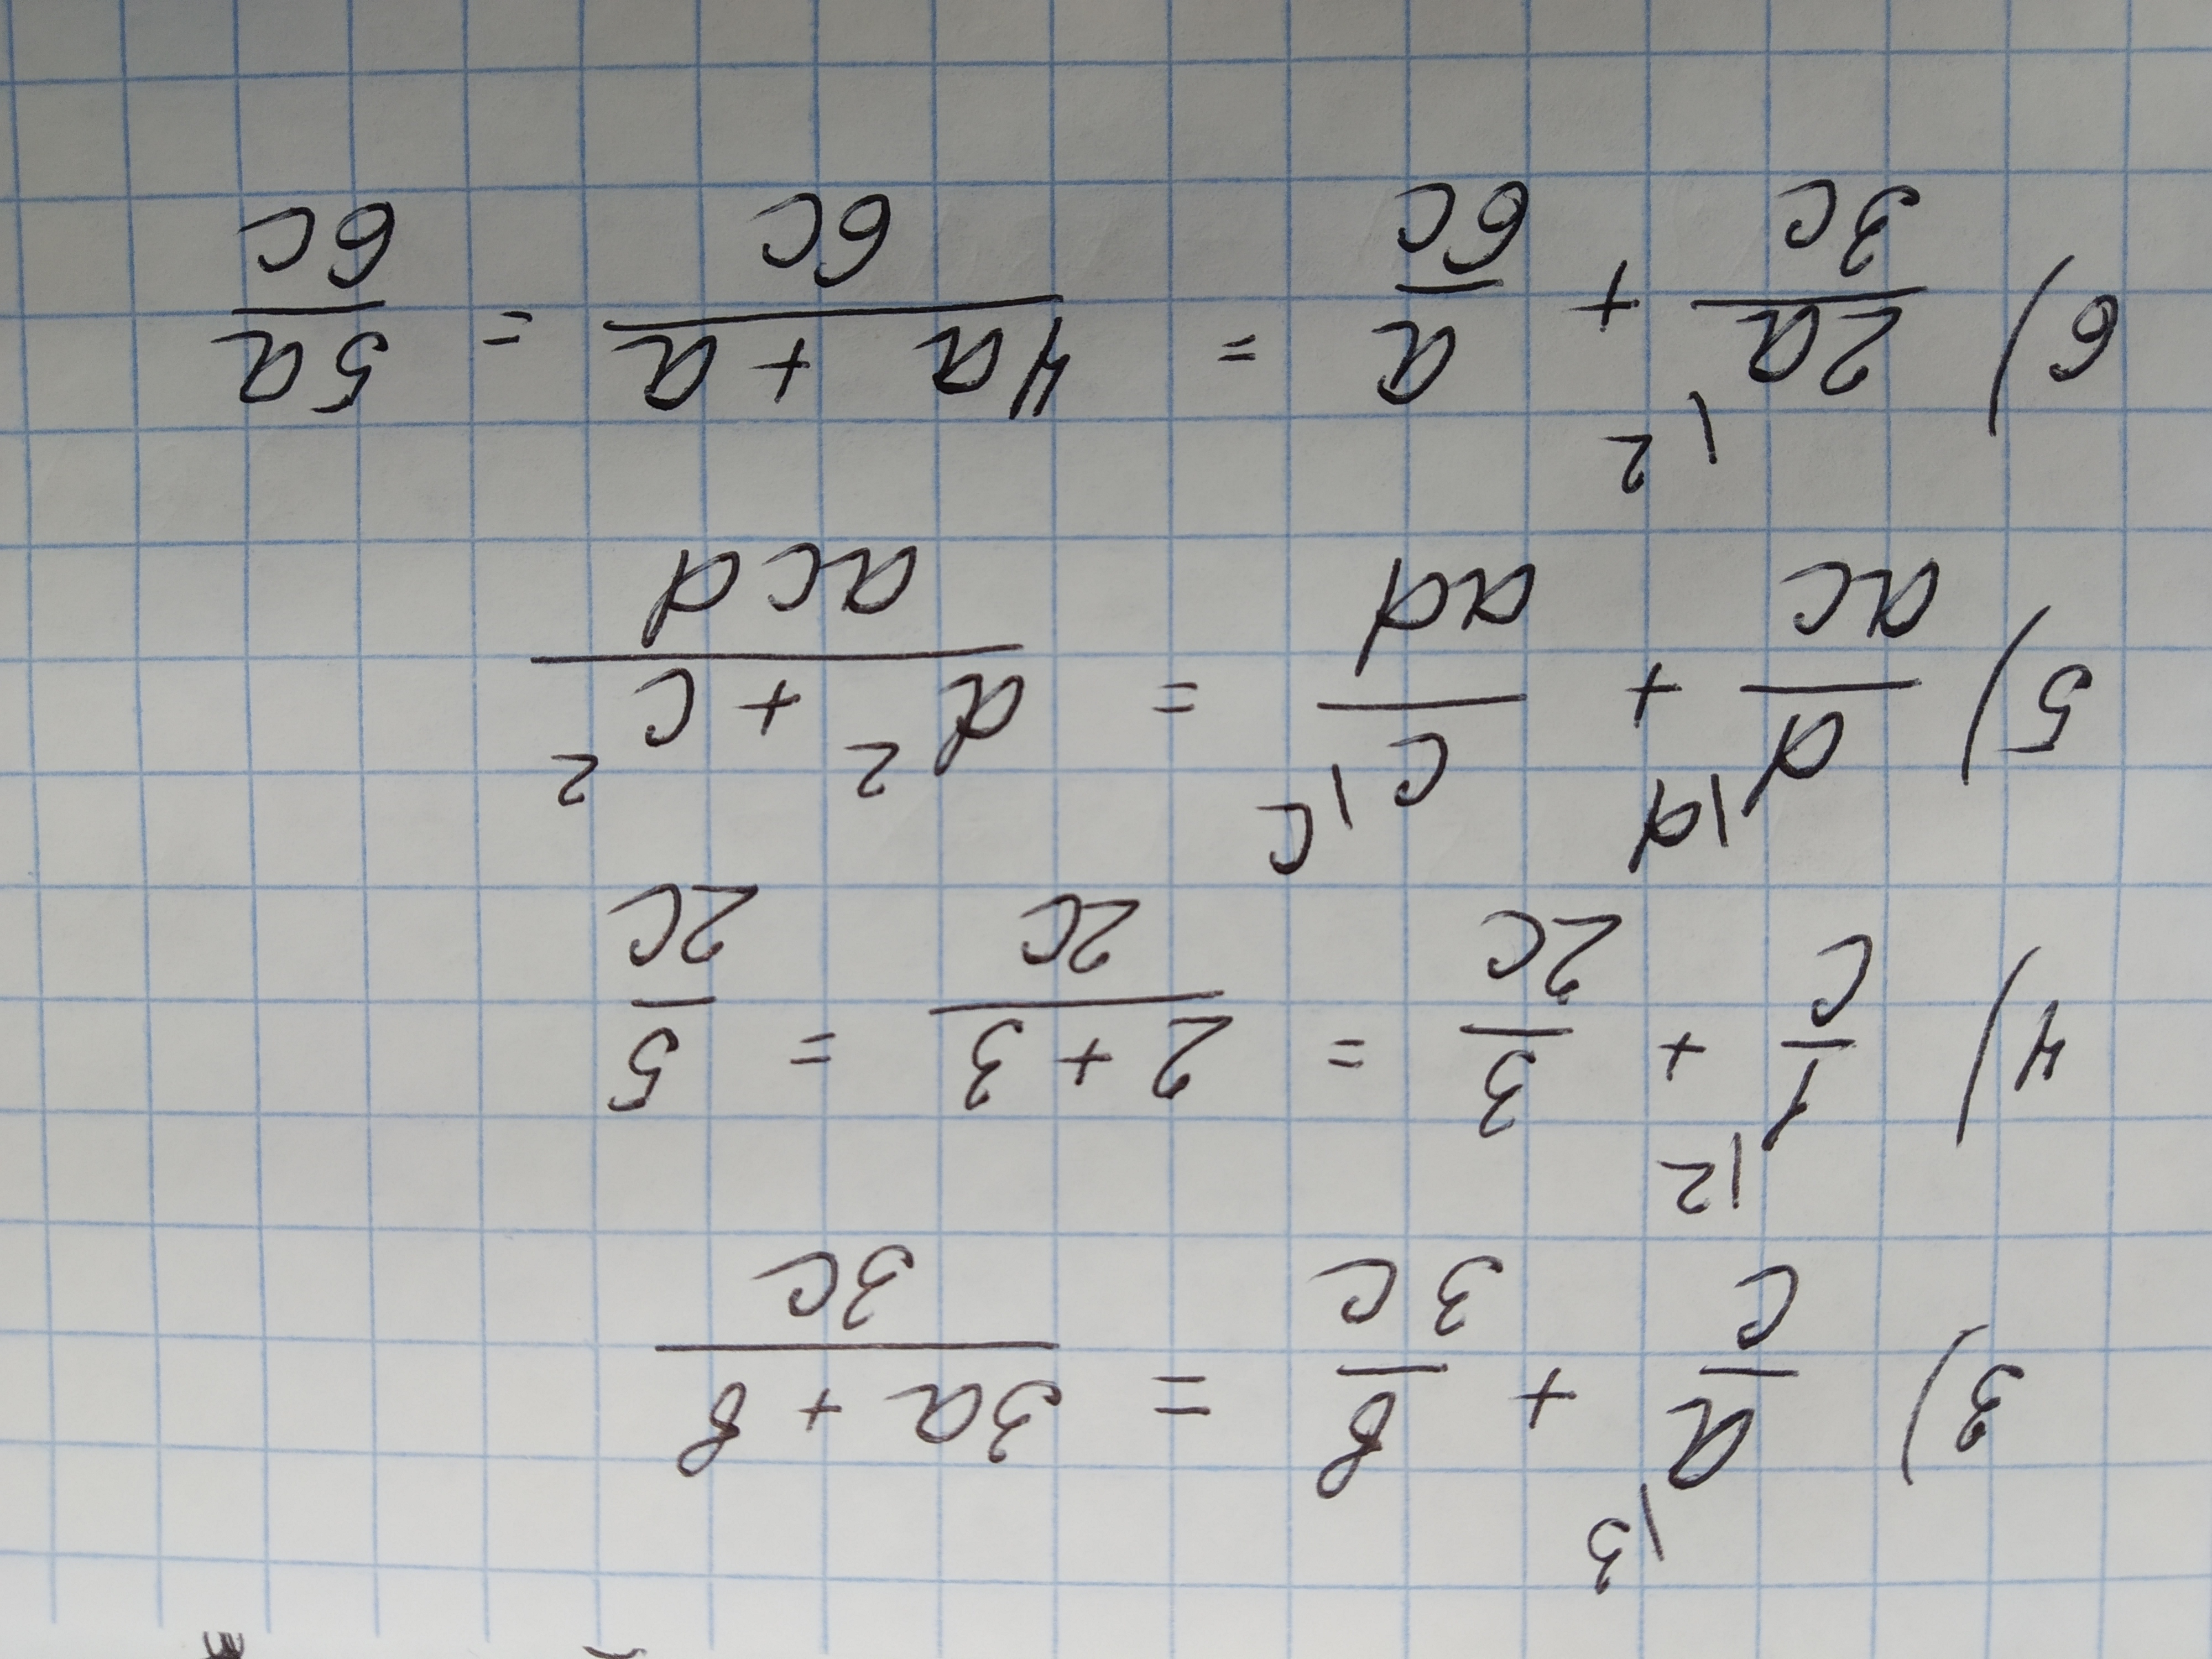 3) a/c |3 + в/3c = 3a + в/3c
4) 1/c |2 + 3/2c = 2 + 3/2c = 5/2c
5) d/ac |d + c/ad |c = d² + c²/acd
6) 2a/3c |2 + a/6c = 4a + a/6c = 5a/6c